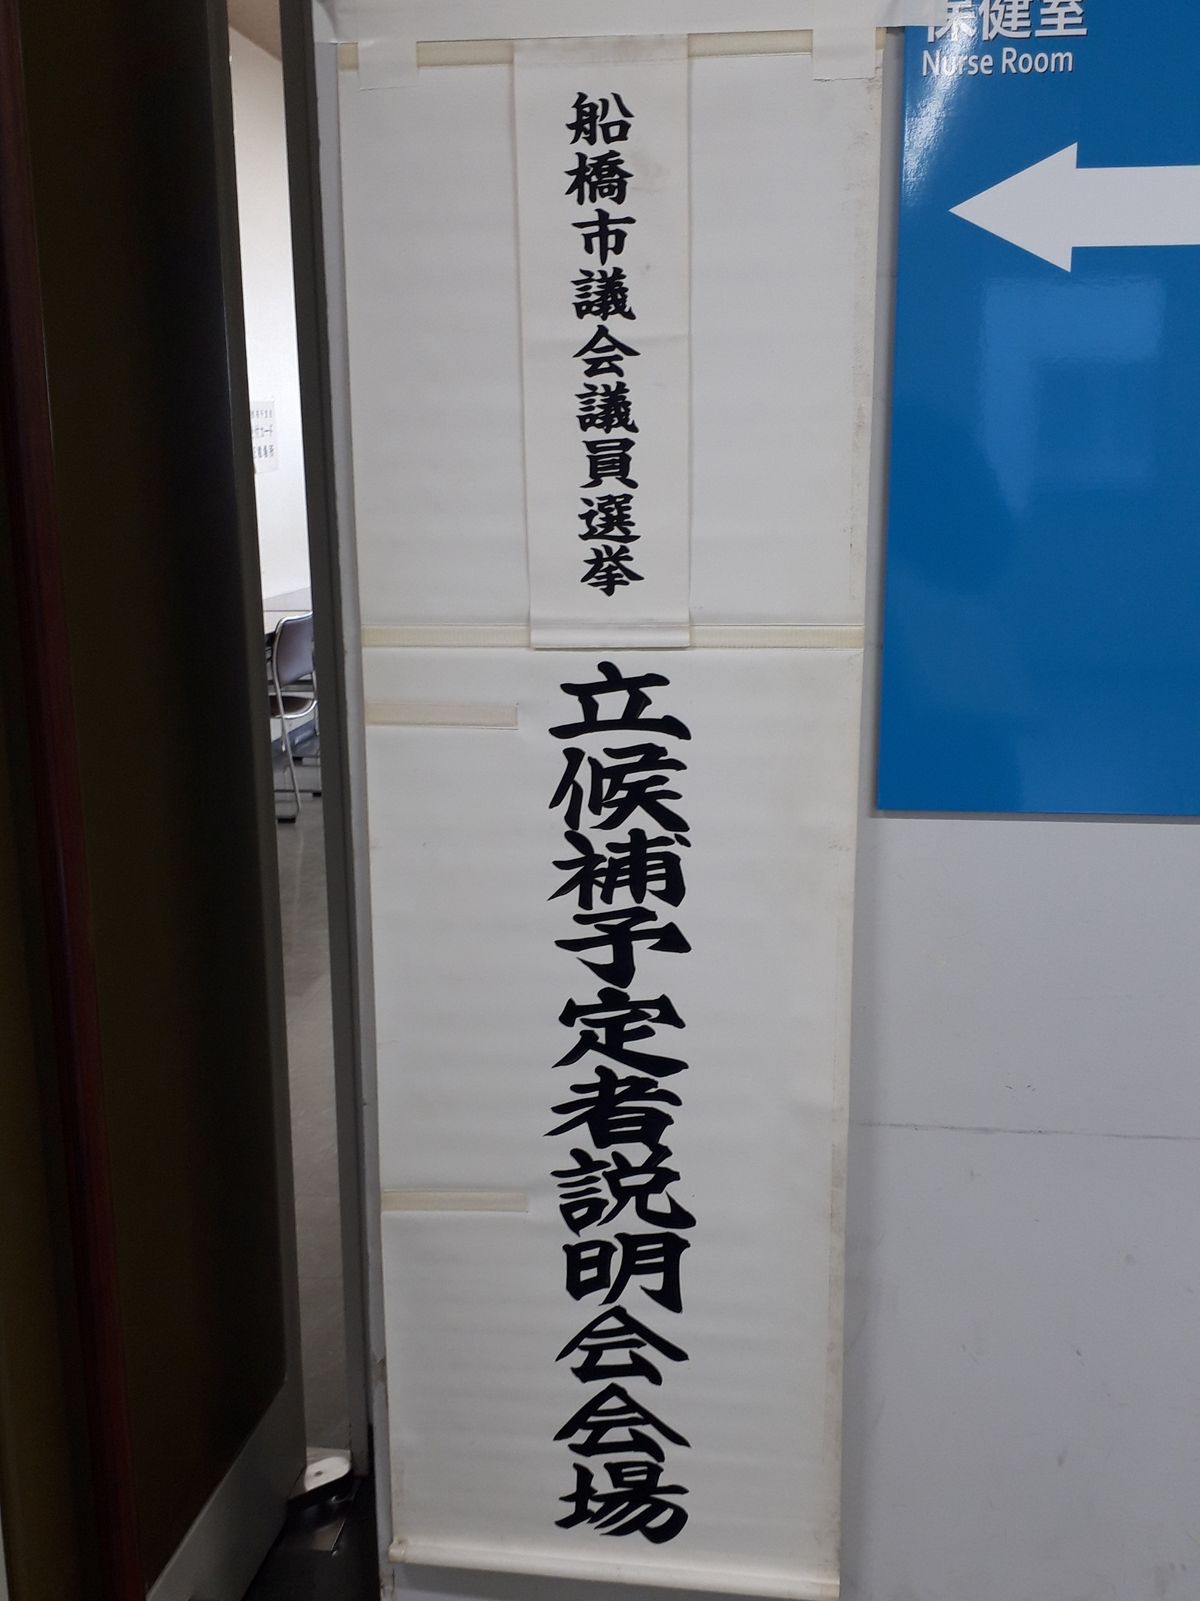 船橋市議会議員選挙
立候補予定者説明会会場
保健室
Nurse Room